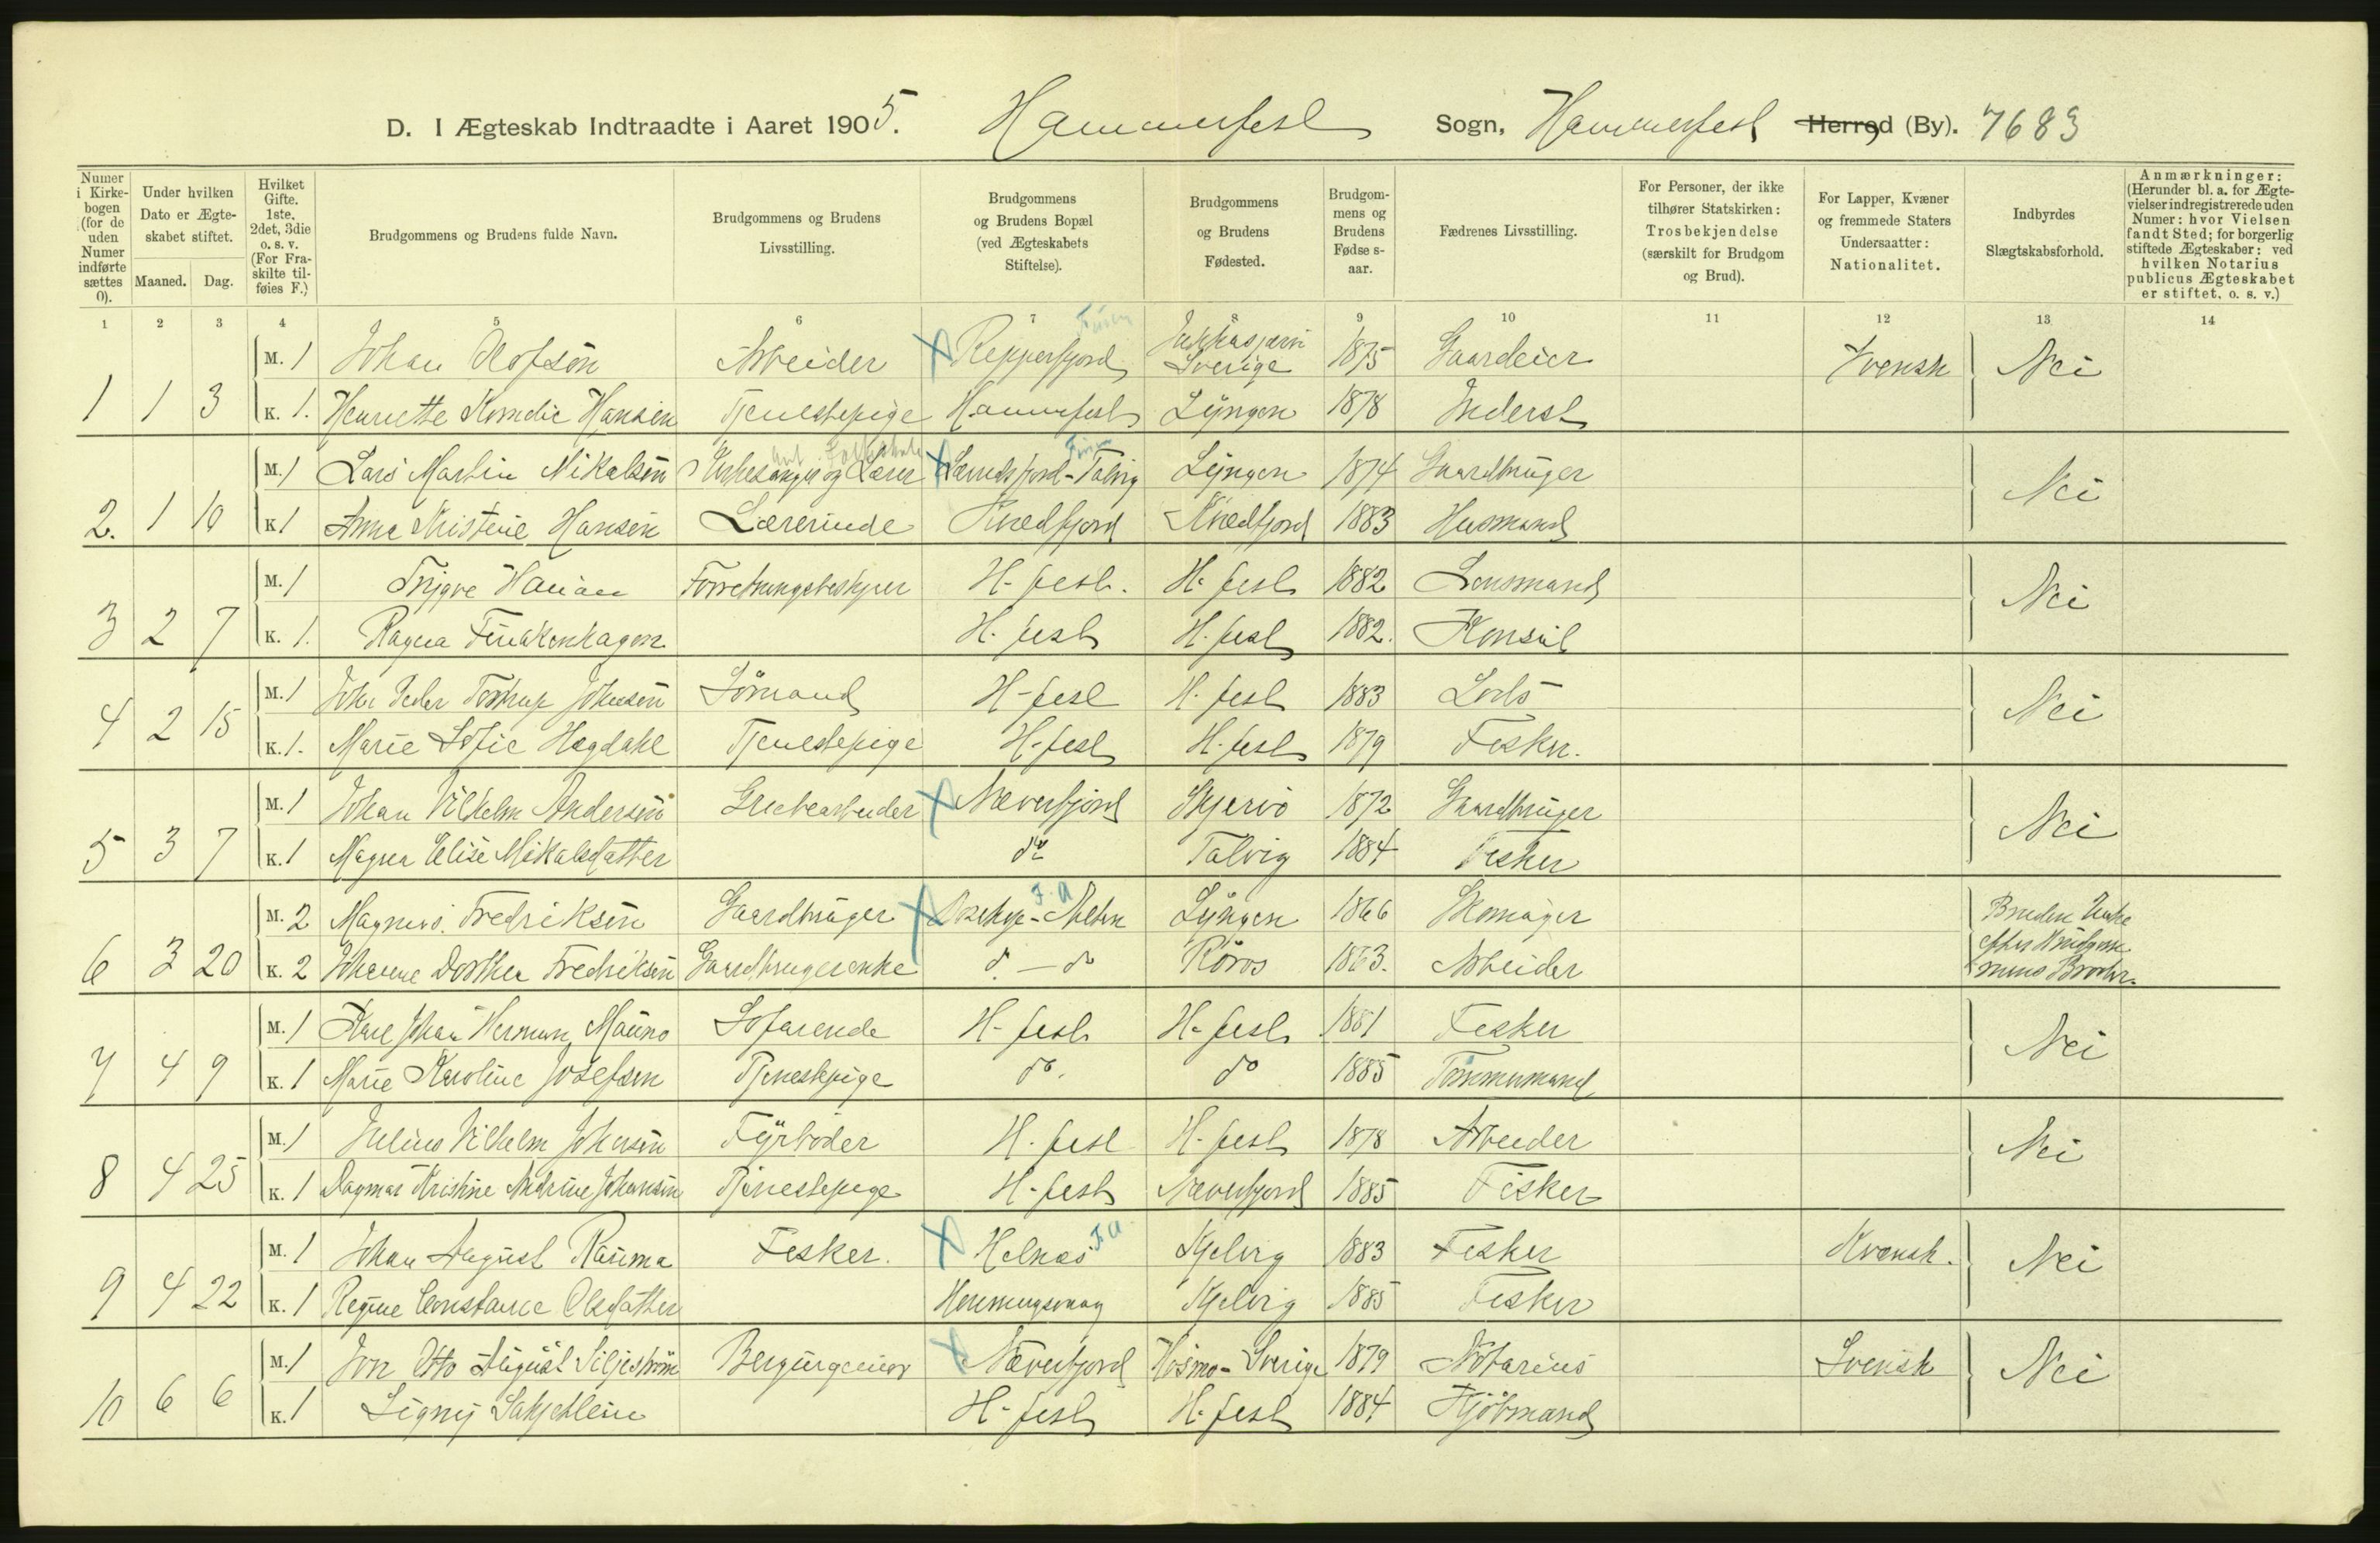 D. I Ægteskab Indtraadte i Aaret 1905. Hammerfest Sogn, Hammerfest Herred (By). 7683
Numer i Kirkebogen (for de uden Numer indførte sættes 0).
Under hvilken Dato er Ægteskabet stiftet.
Maaned. Dag.
Hvilket Gifte. 1ste, 2det, 3die o. s. v. (For Fraskilte tilføies F.)
Brudgommens og Brudens fulde Navn.
Brudgommens og Brudens Livsstilling.
Brudgommens og Brudens Bopæl (ved Ægteskabets Stiftelse).
Brudgommens og Brudens Fødested.
Brudgommens og Brudens Fødselsaar.
Fædrenes Livsstilling.
For Personer, der ikke tilhører Statskirken: Trosbekjendelse (særskilt for Brudgom og Brud).
For Lapper, Kvæner og fremmede Staters Undersaatter: Nationalitet.
Indbyrdes Slægtskabsforhold.
Anmærkninger: (Herunder bl. a. for Ægtevielser indregistrerede uden Numer: hvor Vielsen fandt Sted; for borgerlig stiftede Ægteskaber: ved hvilken Notarius publicus Ægteskabet er stiftet, o. s. v.)
1 2 3 4 5 6 7 8 9 10 11 12 13 14
M. 1 Johan Olofsön Arbeider X Repperfjord Jukkasjærvi Sverige 1875 Gaardeier Svensk Nei
1 1 3 K. 1. Henriette Hansen Tjenestepige Hammerfest Lyngen 1878 Inderst
M. 1 Lars Martin Mikalsen Kirkesanger og Lærer X Talvig Lyngen 1874 Gaardbruger Nei
2. 1 10 K. 1 Anna Kristine Hansen Lærerinde Kvedfjord Kvedfjord 1883 Husmand
M. 1 Trygve Hauan Forretningsbestyrer H-fest. H-fest 1882 Lensmand Nei
3 2 7 K. 1. Ragna Finckenhagen H.fest H.fest 1882. Konsul
M. 1 Johan Peder Johnsen Sömand H-fest H-fest 1883 Lods Nei
4 2 15 K. 1. Marie Sofie Hegdahl Tjenestepige H-fest H-fest 1879 Fisker.
M. 1 Johan Vilhelm Andersen Grubearbeider X Næverfjord Skjervö 1872 Gaardbruger Nei
5 3 7 K. 1 Magna Elise Mikalsdatter do Talvig 1884 Fisker
M. 2 Magnus Fredriksen Gaardbruger X Bosekop - Alten F. A Lyngen 1866 Skomager Bruden Enke
6 3 20 K. 2 Johanne Dorthea Fredriksen Gaardbrugerenke do — do Röros 1863. Arbeider efter Brudgommens Broder.
M. 1 Karl Johan Herman Mauno Söfarende H-fest H-fest 1881 Fisker Nei
7 4 9 K. 1 Marie Karoline Josefsen Tjenestepige do. do 1885 Tömmermand
M. 1 Julius Vilhelm Johnsen Fyrböder H-fest H-fest 1878 Arbeider Nei
8 4 25 K. 1 Dagmar Kristine Andrine Johansen Tjenestepige H-fest Næverfjord 1885 Fisker
M. 1 Johan August Rauma Fisker. X Helnæs F A Kjelvig 1883 Fisker Kvænsk. Nei
9 4 22 K. 1 Regine Constance Olsdatter Honningsvaag Kjelvig 1885 Fisker
M. 1 Jon Otto August Siljeström Bergingeniör X Næverfjord Sverige 1879 Notarius Svensk Nei
10 6 6 K. 1 Signy H-fest H-fest 1884 Kjöbmand